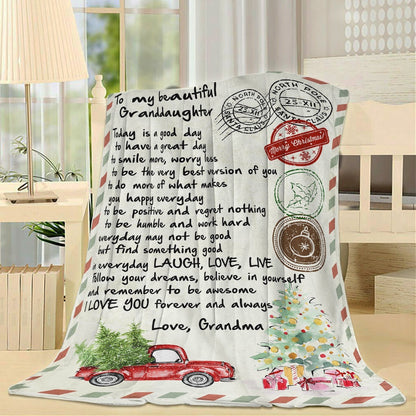 To my beautiful
Granddaughter
Today is a good day
to have a great day
to smile more, worry less
to be the very best version of you
to do more of what makes
you happy everyday
to be positive and regret nothing
to be humble and work hard
everyday may not be good
but find something good
in everyday LAUGH, LOVE, LIVE
Follow your dreams, believe in yourself
and remember to be awesome
I LOVE YOU forever and always
Love, Grandma
NORTH POLE
23-XII
SANTA CLAUS
NORTH POLE
23-XII
SANTA CLAUS
Merry Christmas